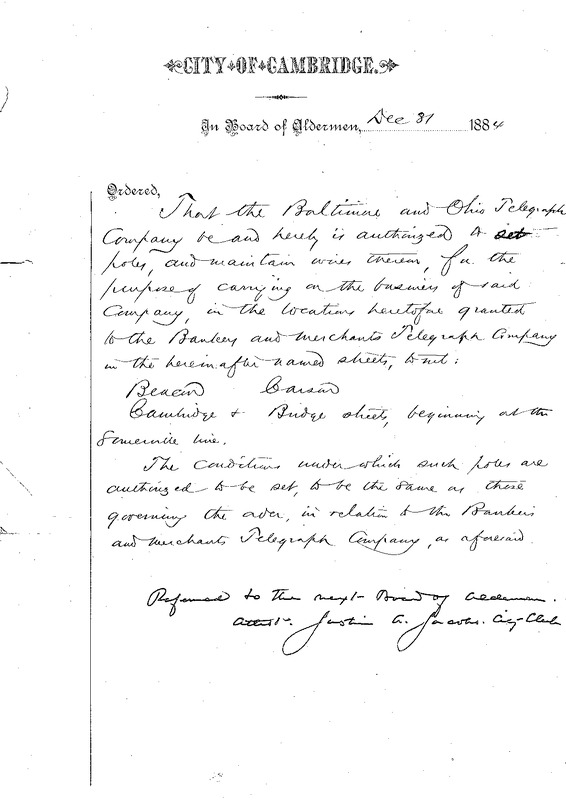 CITY OF CAMBRIDGE.
In Board of Aldermen, Dec 31 1884
Ordered,
That the Baltimore and Ohio Telegraph
Company be and hereby is authorized to set
poles, and maintain wires therein, for the
purpose of carrying on the business of said
Company, in the locations heretofore granted
to the Bankers and Merchants Telegraph Company
in the hereinafter named streets, to wit:
Beacon
Cambridge & Bridge streets, beginning at the
Somerville line.
The conditions under which such poles are
authorized to be set, to be the same as those
governing the order, in relation to the Bankers
and Merchants Telegraph Company, as aforesaid.
Referred to the next Board of Aldermen.
Attest. Justin A. Jacobs. City Clerk